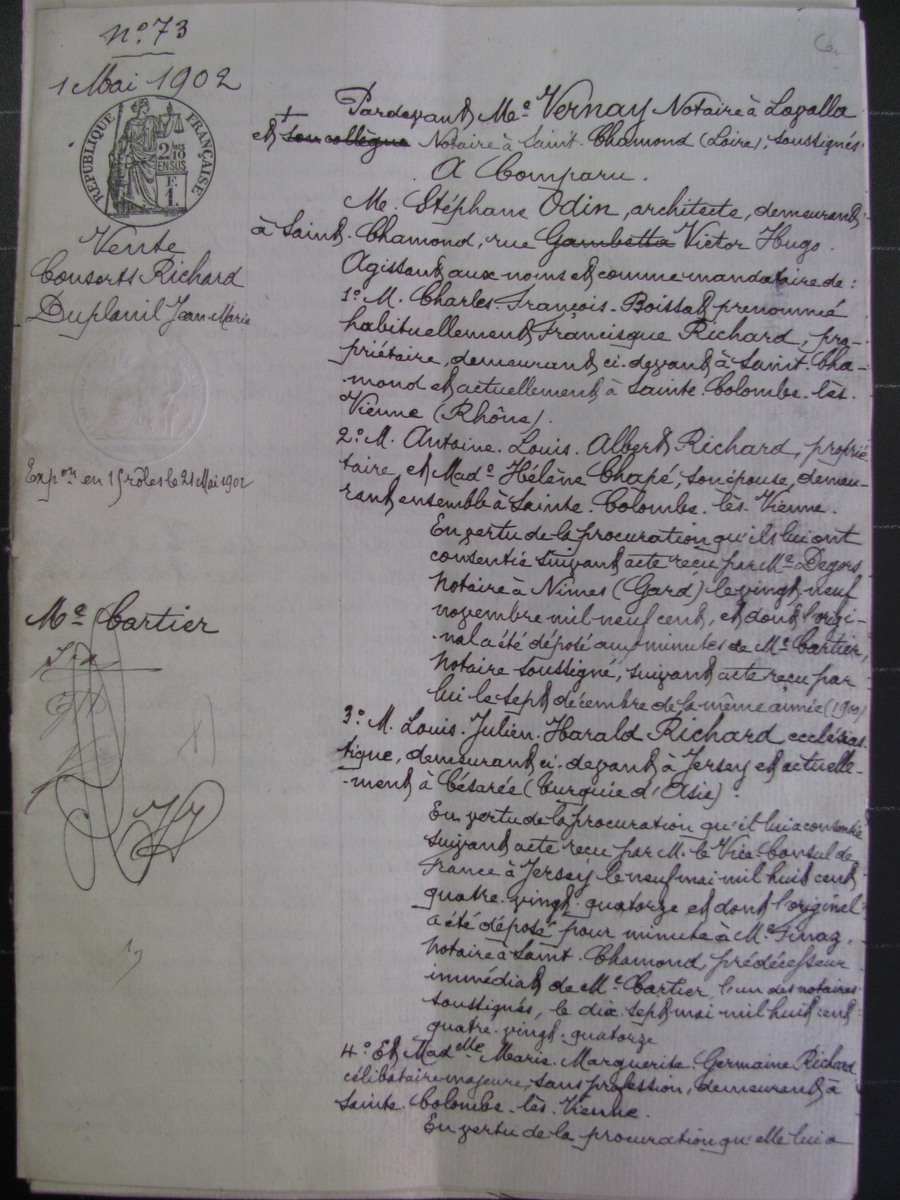 n° 73
1 Mai 1902
RÉPUBLIQUE FRANÇAISE
2/10 EN SUS
F. 1.
Vente
Consorts Richard
Duplanil Jean-Marie
Expon en 15 rôles le 21 Mai 1902
Me Cartier
Pardevant Me Vernay Notaire à Lavalla
et son collègue Notaire à Saint-Chamond (Loire), soussignés
A Comparu.
M. Stéphane Odin, architecte, demeurant
à Saint-Chamond, rue Gambetta Victor Hugo.
Agissant aux noms et comme mandataire de :
1° M. Charles-François-Boissat prénommé
habituellement Francisque Richard, pro-
priétaire, demeurant ci-devant à Saint-Cha-
mond et actuellement à Sainte-Colombe-lès-
Vienne (Rhône).
2° M. Antoine-Louis-Albert Richard, proprié
taire, et Made Hélène Chapé, son épouse, demeu-
rant ensemble à Sainte-Colombe-lès-Vienne.
En vertu de la procuration qu'ils lui ont
consentie suivant acte reçu par Me Degors
Notaire à Nîmes (Gard) le vingt neuf
novembre mil neuf cent, et dont l'origi-
nal a été déposé aux minutes de Me Cartier,
Notaire soussigné, suivant acte reçu par
lui le sept décembre de la même année (1900)
3° M. Louis-Julien-Harald Richard ecclésias
tique, demeurant ci-devant à Jersey et actuelle-
ment à Césarée (Turquie d'Asie).
En vertu de la procuration qu'il lui a consentie
suivant acte reçu par M. le Vice-Consul de
France à Jersey le neuf mai mil huit cent
quatre-vingt-quatorze et dont l'original
a été déposé pour minute à Me Finaz,
Notaire à Saint-Chamond, prédécesseur
immédiat de Me Cartier, l'un des notaires
soussignés, le dix sept mai mil huit cent
quatre-vingt-quatorze
4° Et Madelle Marie-Marguerite-Germaine Richard
célibataire majeure, sans profession, demeurant à
Sainte-Colombe-lès-Vienne.
En vertu de la procuration qu'elle lui a